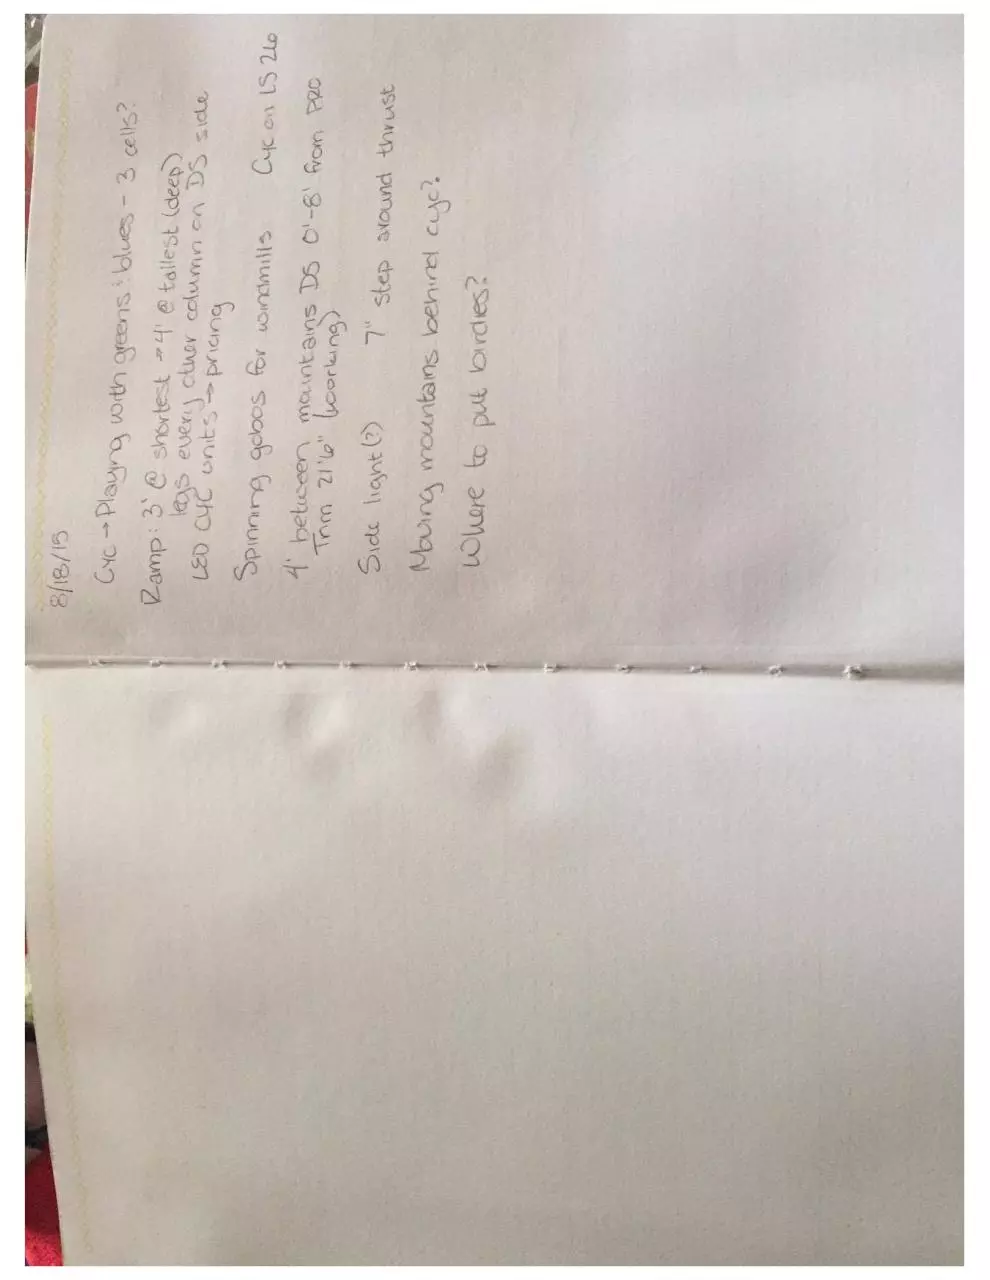 8/18/15
Cyc → Playing with greens : blues - 3 cells?
Ramp: 3' @ shortest → 4' @ tallest (deep)
legs every other column on DS side
LED CYC units → pricing
Spinning gobos for windmills Cyc on LS 26
4' between mountains DS 0'-8' from PRO
Trim 21'6" (working)
Side light (?) 7" step around thrust
Moving mountains behind cyc?
Where to put birdies?